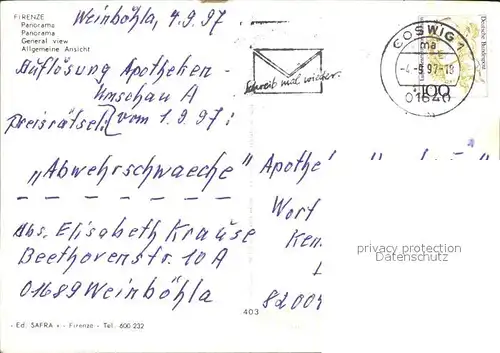 FIRENZE
Panorama
Panorama
General view
Allgemeine Ansicht
Weinböhla, 4.9.97
Auflösung Apotheken-
Umschau A
Preisrätsel: vom 1.9.97:
"Abwehrschwaeche"
Abs. Elisabeth Krause
Beethovenstr. 10 A
01689 Weinböhla
- Ed. SAFRA - - Firenze - Tel. 600 232
403
Schreib mal wieder.
COSWIG 1
ma
-4.-9.97-18
01640
100
Deutsche Bundespost
Apothe
Wort
Ken
82004
privacy protection
Datenschutz